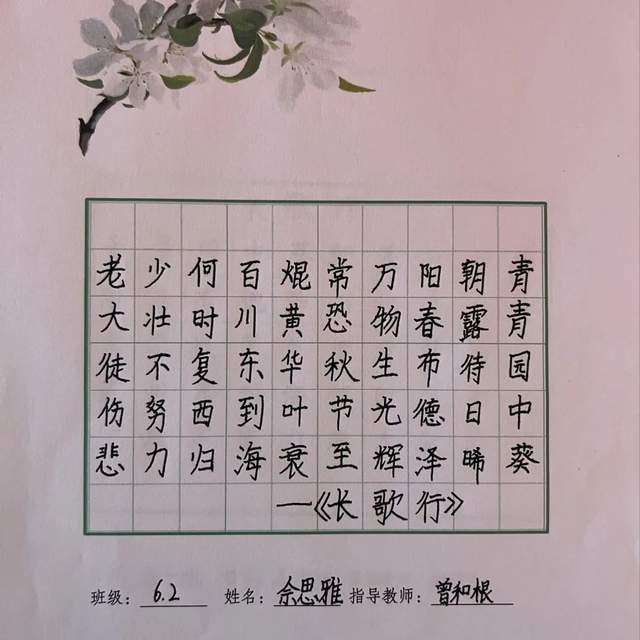 青青园中葵
朝露待日晞
阳春布德泽
万物生光辉
常恐秋节至
焜黄华叶衰
百川东到海
何时复西归
少壮不努力
老大徒伤悲
—《长歌行》
班级：6.2 姓名：佘思雅 指导教师：曾和根